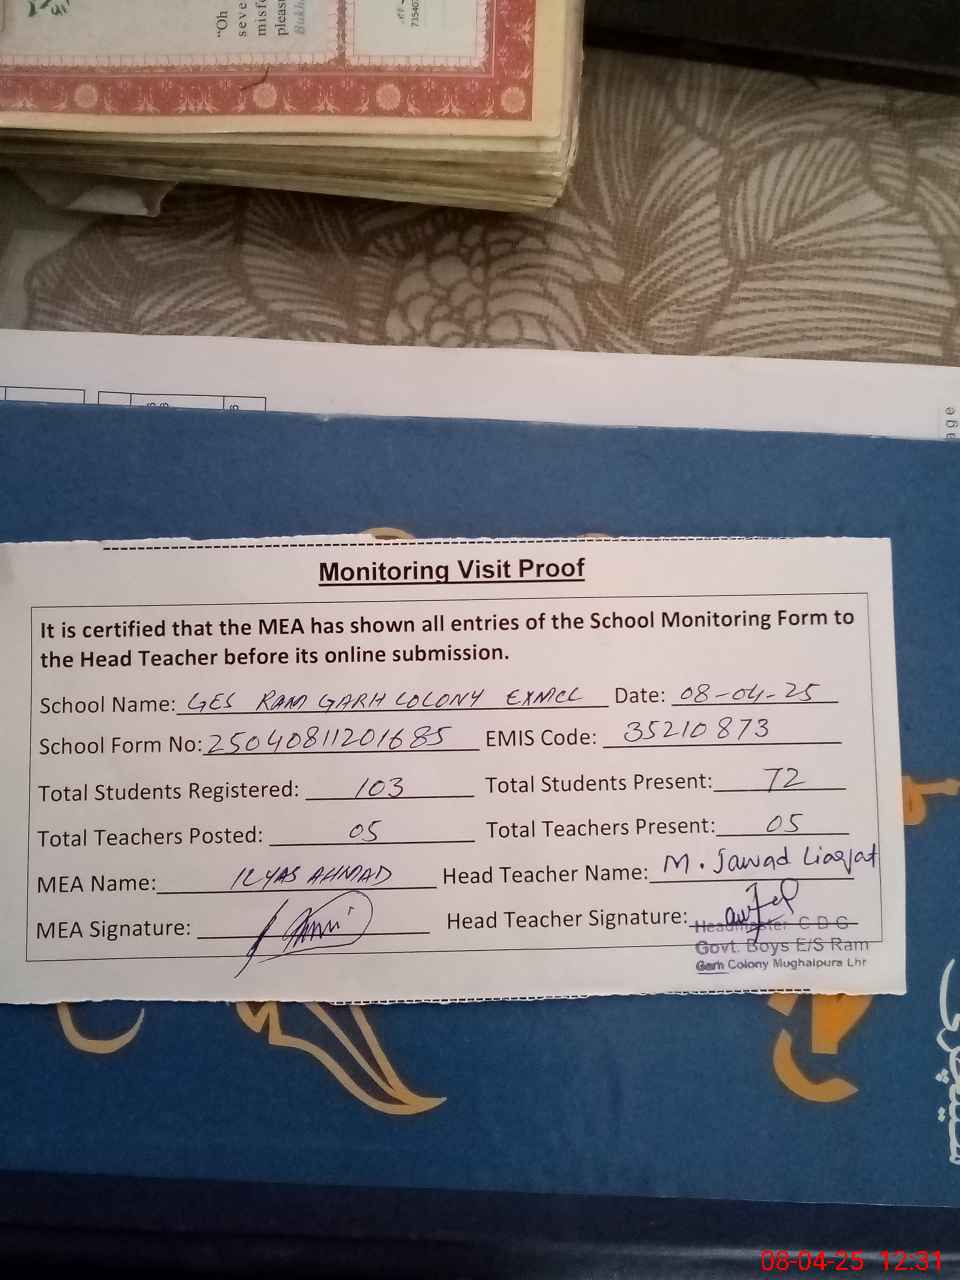 "Oh
seve
misfo
pleas
Bukh
73540
age
Monitoring Visit Proof
It is certified that the MEA has shown all entries of the School Monitoring Form to
the Head Teacher before its online submission.
School Name: GES RAM GARH COLONY EXMCL Date: 08-04-25
School Form No: 25040811201685 EMIS Code: 35210873
Total Students Registered: 103 Total Students Present: 72
Total Teachers Posted: 05 Total Teachers Present: 05
MEA Name: ILYAS AHMAD Head Teacher Name: M. Jawad Liaqat
MEA Signature: Head Teacher Signature:
Headmaster C D G
Govt. Boys E/S Ram
Garh Colony Mughalpura Lhr
08-04-25 12:31